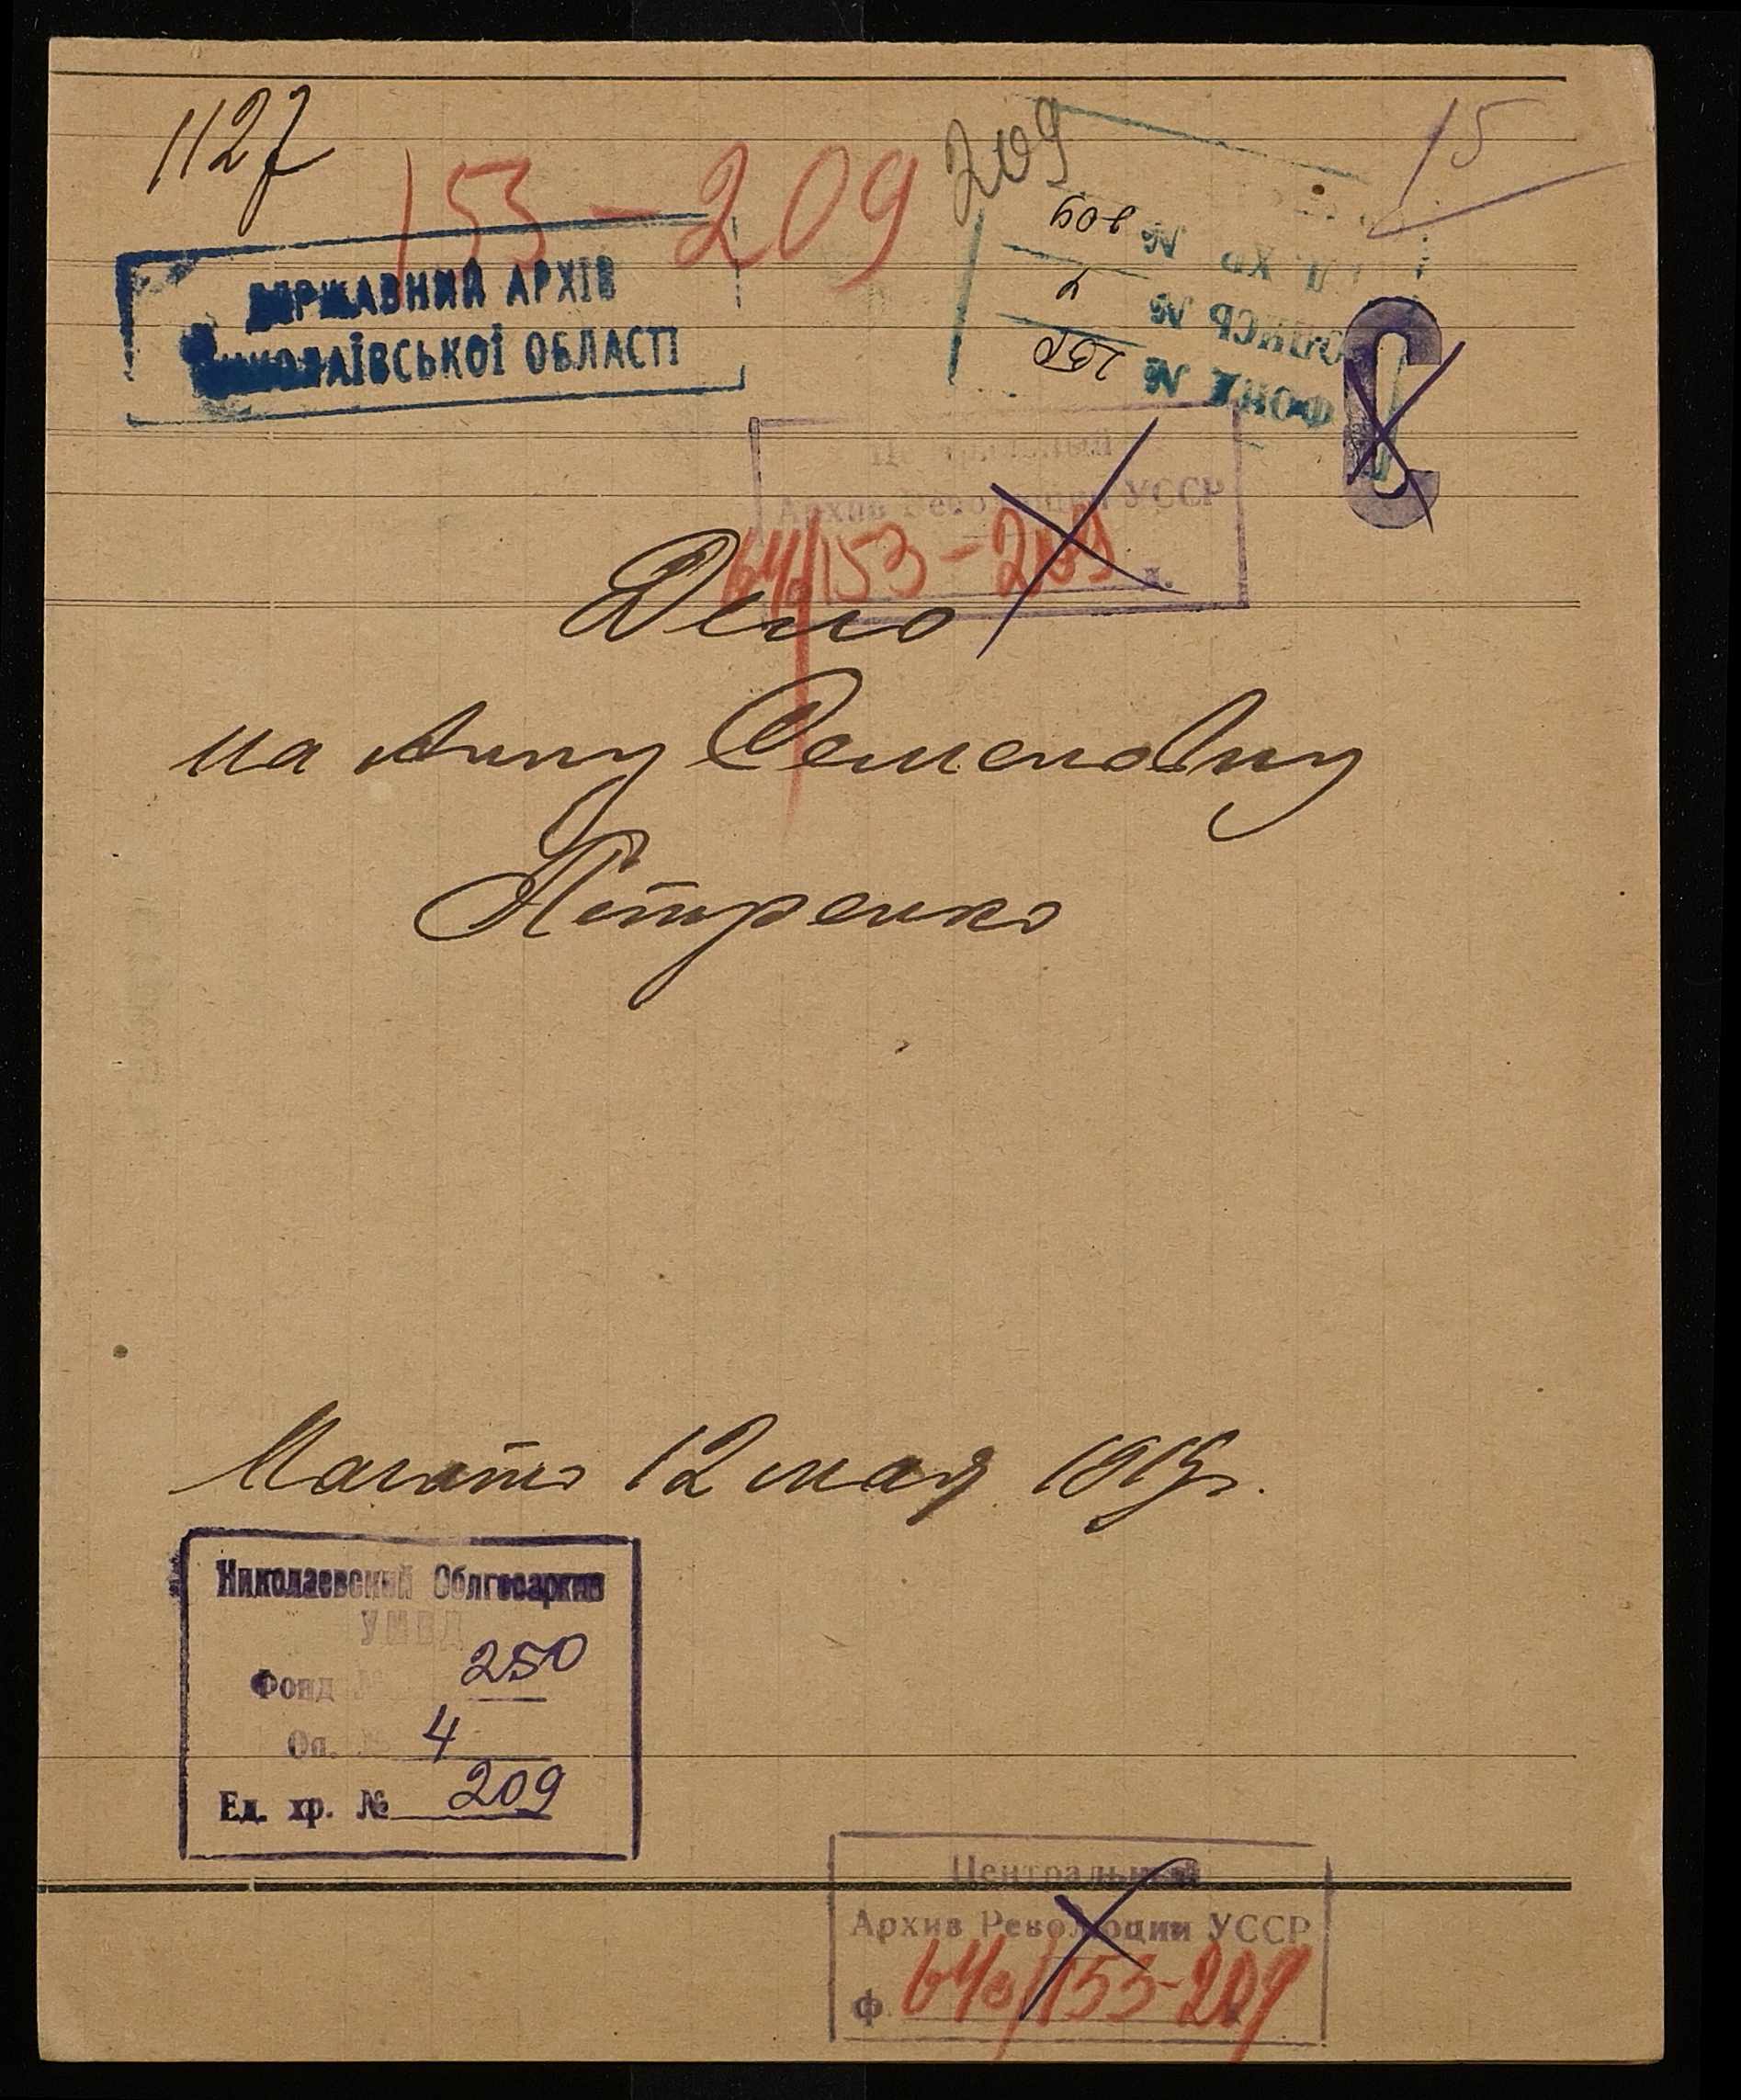 1127
153-209
209
15
ДЕРЖАВНИЙ АРХІВ
МИКОЛАЇВСЬКОЇ ОБЛАСТІ
ФОНД № 250
ОПИСЬ №
ЕД. ХР. № 209
Центральный
Архив Революции УССР
64/153-209
Дело
на Анну Семеновну
Петренко
Начато 12 мая 1919 г.
Николаевский Облгосархив
УМВД
Фонд № 250
Оп. № 4
Ед. хр. № 209
Центральный
Архив Революции УССР
Ф. 640/153-209